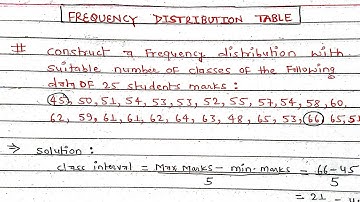 FREQUENCY DISTRIBUTION TABLE
# construct a Frequency distribution with
suitable number of classes of the Following
data OF 25 students marks :
45, 50, 51, 54, 53, 53, 52, 55, 57, 54, 58, 60,
62, 59, 61, 61, 62, 64, 63, 48, 65, 53, 66 65, 51
→ Solution :
class interval = Max marks - min. marks / 5 = 66-45 / 5
= 21